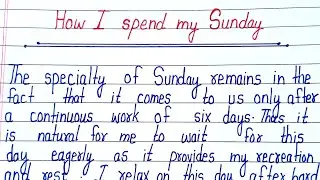 How I spend my Sunday
The specialty of Sunday remains in the
fact that it comes to us only after
a continuous work of six days. Thus it
is natural for me to wait for this
day eagerly as it provides my recreation
and rest. I relax on this day after hard